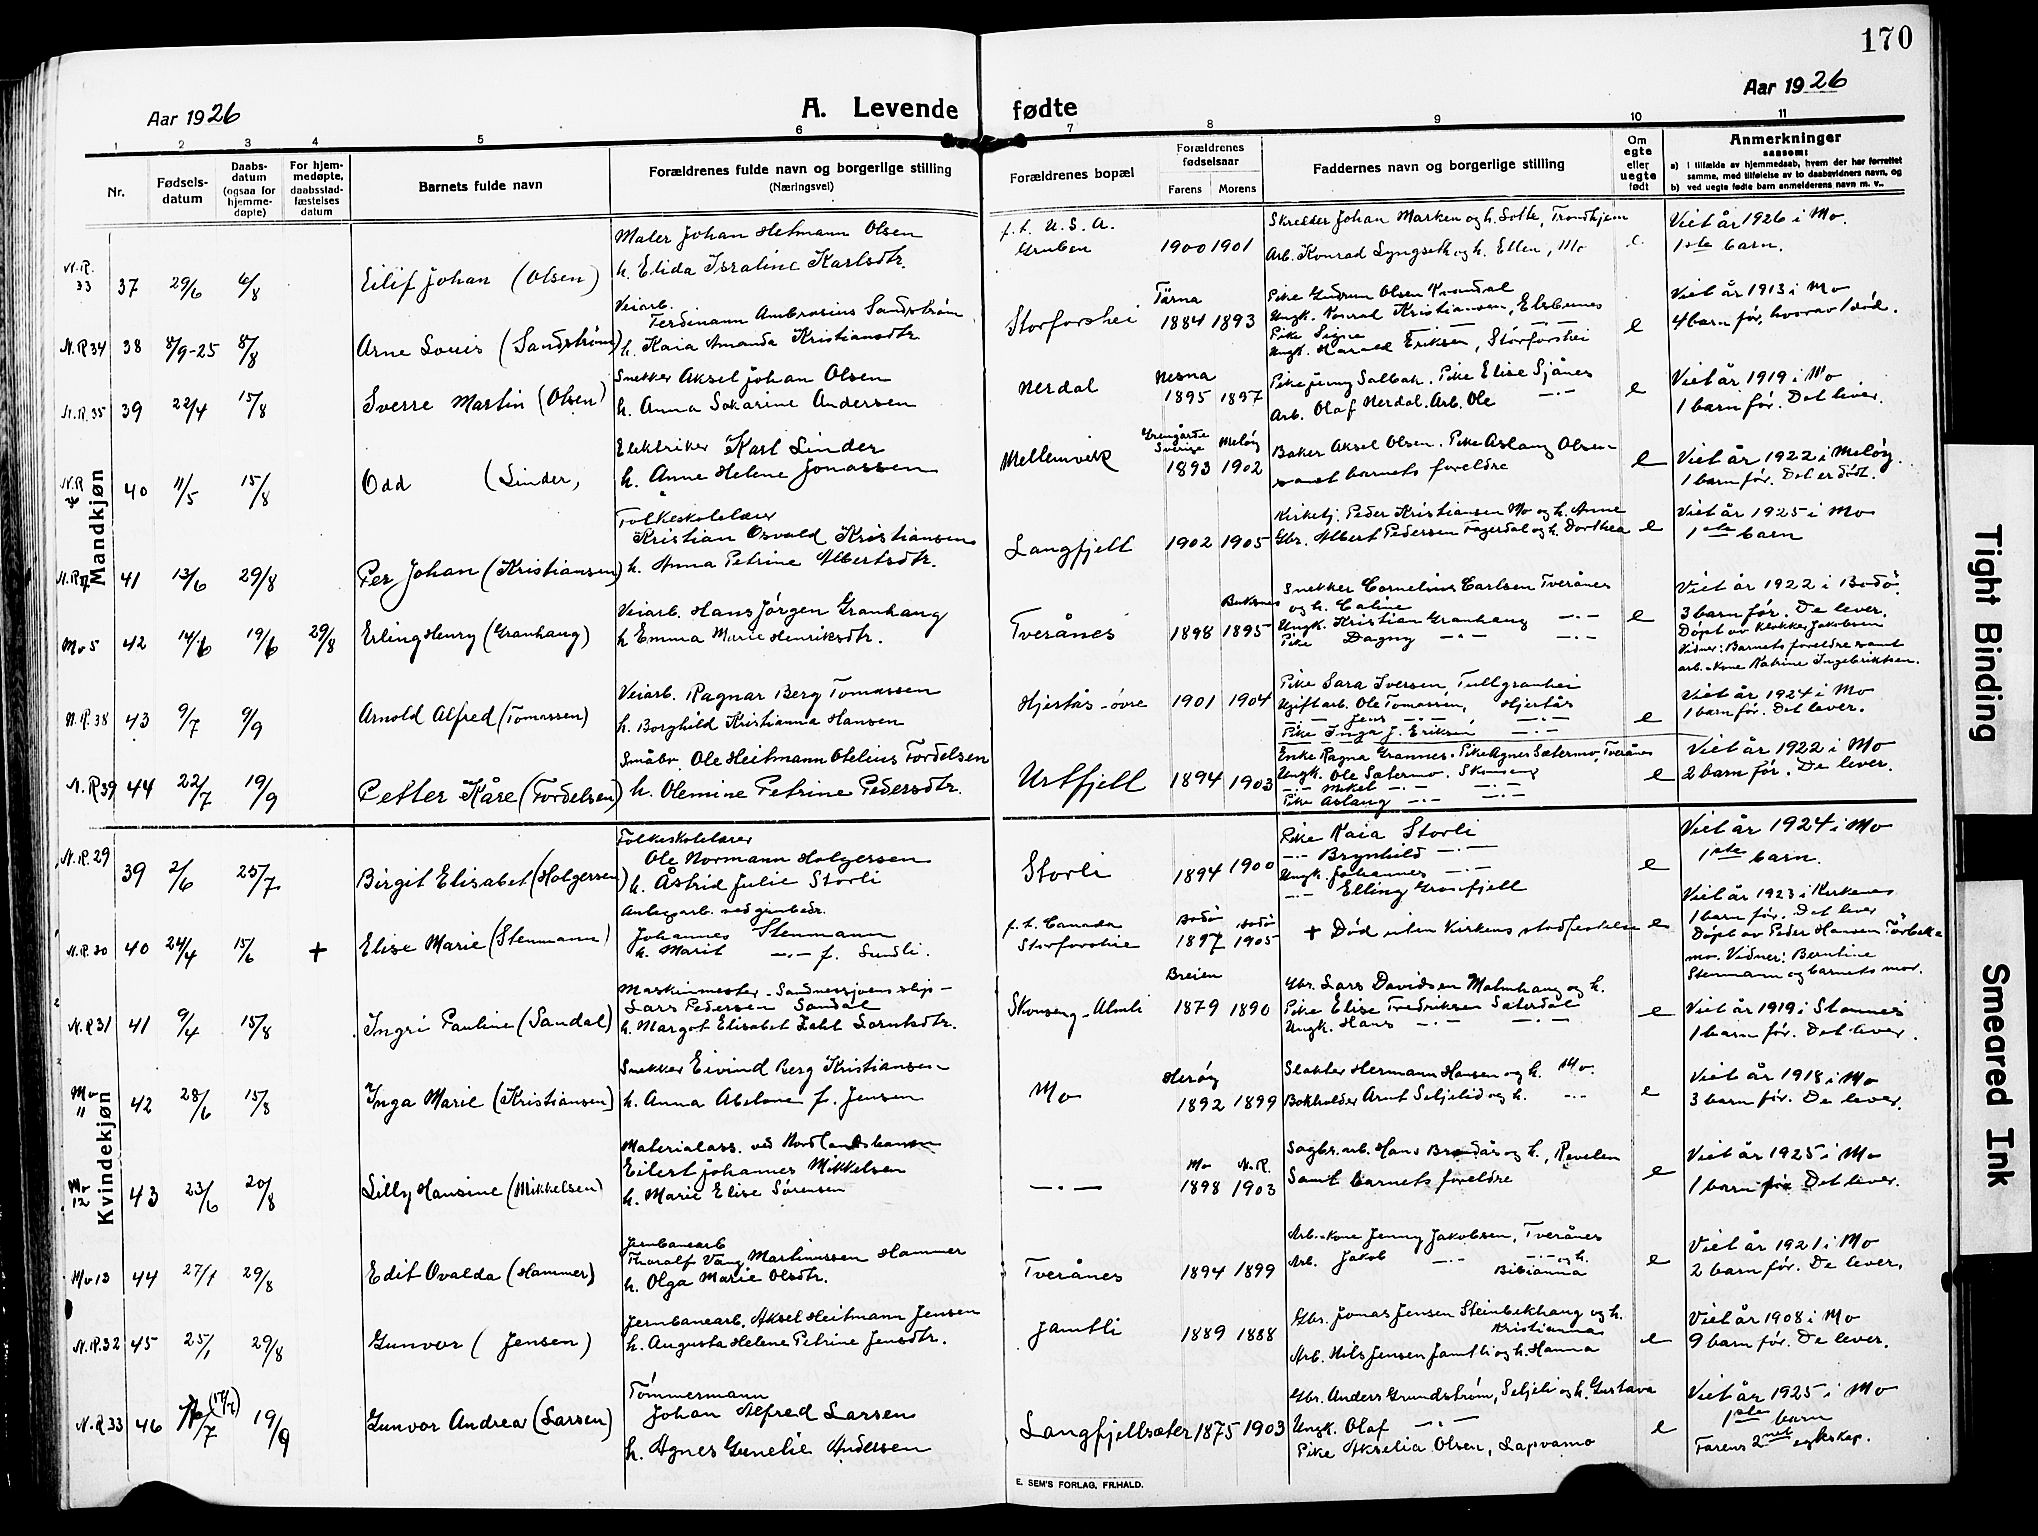 170
Aar 1926
A. Levende fødte
Aar 1926
1 2 3 4 5 6 7 8 9 10 11
Nr.
Fødsels-
datum
Daabs-
datum
(ogsaa for
hjemme-
døpte)
For hjem-
medøpte,
daabsstad-
fæstelses
datum
Barnets fulde navn
Forældrenes fulde navn og borgerlige stilling
(Næringsvei)
Forældrenes bopæl
Forældrenes
fødselsaar
Farens
Morens
Faddernes navn og borgerlige stilling
Om
egte
eller
uegte
født
Anmerkninger
saasom:
a) i tilfælde av hjemmedaab, hvem der har forrettet
samme, med tilføielse av to daabsvidners navn, og
b) ved uegte fødte barn anmelderens navn m. v..
Mandkjøn
N.R. 33 37 29/6 6/8 Eilif Johan (Olsen)
Maler Johan Hetmann Olsen
h. Elida Israline Karlsdtr.
f.t. U.S.A.
Gruben 1900 1901
Skredder Johan Marken og h. Lotte, Trondhjem
Arb. Konrad Lyngseth og h. Ellen, Mo
e.
Viet år 1926 i Mo.
1ste barn.
N.R 34 38 8/9-25 8/8 Arne Louis (Sandstrøm)
Veiarb.
Ferdinann Ambrosius Sandstrøm
h. Kaia Amanda Kristiansdtr.
Storforshei
Tärna
1884 1893
Pike Gudrun Olsen Kvandal
Ungk. Konrad Kristiansen, Elsbunes
Pike Signe —"— —"—
Ungk. Harald Eriksen, Storforshei
e
Viet år 1913 i Mo
4 barn før, hvorav 1 død.
N.R. 35 39 22/4 15/8 Sverre Martin (Olsen)
Snekker Aksel Johan Olsen
h. Anna Sokarine Andersen
Nerdal
Nesna
1895 1897
Pike Jenny Salbak. Pike Elise Sjånes
Arb. Olaf Nerdal. Arb. Ole —"—
e
Viet år 1919 i Mo
1 barn før. Det lever.
N.R 40 11/5 15/8 Odd (Linder,
Elektriker Karl Linder
h. Anne Helene Jonassen
Mellemvik
Grengärde
Sverige Meløy
1893 1902
Baker Aksel Olsen. Pike Aslaug Olsen
samt barnets foreldre
e
Viet år 1922 i Meløy.
1 barn før. Det er dødt.
N.R 37 41 13/6 29/8 Per Johan (Kristiansen)
Folkeskolelærer
Kristian Osvald Kristiansen
h. Anna Petrine Albertsdtr.
Langfjell 1902 1905
Kirketj. Peder Kristiansen Mo og h. Anne
Gbr. Albert Pedersen Fagerdal og h. Dorthea
e
Viet år 1925 i Mo
1ste barn
Mo 5 42 14/6 19/6 29/8 Erling Henry (Granhaug)
Veiarb. Hans Jørgen Granhaug
h Emma Marie Henriksdtr.
Tverånes
Buksnes
1898 1895
Snekker Cornelius Carlsen Tverånes
og h. Caline
Ungk. Kristian Granhaug —"—
Pike Dagny —"— —"—
e
Viet år 1922 i Bodø.
3 barn før. De lever.
Døpt av klokker Jakobsen
Vidner: Barnets foreldre samt
arb.-kone Katrine Ingebriktsen.
N.R. 38 43 9/7 9/9 Arnold Alfred (Tomassen)
Veiarb. Ragnar Berg Tomassen
h. Borghild Kristianna Hansen
Hjertås-øvre 1901 1904
Pike Sara Iversen, Tullgranhei
Ugift arb. Ole Tomassen, Hjertås
—"— Jens —"— —"—
Pike Inga J. Eriksen —"—
e
Viet år 1924 i Mo
1 barn før. Det lever.
N.R 39 44 22/7 19/9 Petter Kåre (Fordelsen)
Småbr. Ole Heitmann Otelius Fordelsen
h. Olemine Petrine Pedersdtr.
Urtfjell 1894 1903
Enke Ragna Grannes. Pike Agnes Sætermo, Tverånes
Ungk. Ole Sætermo. Skonseng
—"— Mikal —"— —"—
Pike Aslaug —"— —"—
e
Viet år 1922 i Mo
2 barn før. De lever.
Kvindekjøn
N.R. 29 39 2/6 25/7 Birgit Elisabet (Holgersen)
Folkeskolelærer
Ole Normann Holgersen
h. Åstrid Julie Storli
Storli 1894 1900
Pike Kaia Storli
—"— Brynhild —"—
Ungk. Johannes —"—
—"— Elling Grosfjell
e
Viet år 1924 i Mo
1ste barn.
N.R. 30 40 24/4 15/6 + Elise Marie (Stenmann)
Anlegsarb. ved grubedr.
Johannes Stenmann
h. Marit —"— f. Sundli.
f.t. Canada
Storforshei
Bodø Bodø
1897 1905
+ Død uten Kirkens stadfestelse
e
Viet år 1923 i Kirkenes
1 barn før. Det lever
Døpt av Peder Hansen Förbekk
mo. Vidner: Berntine
Stenmann og barnets mor.
N.R 31 41 9/4 15/8 Ingri Pauline (Sandal)
Maskinmester - Sandnessjøens slip -
Lars Pedersen Sandal
h. Margot Elisabet Zahl Lorntsdtr.
Skonseng-Almli
Breien
1879 1890
Gbr. Lars Davidsen Malmhaug og h.
Pike Elise Fredriksen Sæterdal
Ungk. Hans —"— —"—
e
Viet år 1919 i Stamnes
1 barn før. Det lever.
Mo 11 42 28/6 15/8 Inga Marie (Kristiansen)
Snekker Eivind Berg Kristiansen
h. Anna Abelone f. Jensen
Mo
Herøy
1892 1899
Slakter Hermann Hansen og h. Mo.
Bokholder Arnt Seljelid og h. —"—
e
Viet år 1918 i Mo
3 barn før. De lever.
Mo 12 43 23/6 20/8 Lilly Hansine (Mikkelsen)
Materialass. ved Nordlandsbanen
Eilert Johannes Mikkelsen
h. Marie Elise Sørensen
—"—
Mo N.R.
1898 1903
Sagbr.arb. Hans Brendås og h., Revelen
Samt barnets foreldre
e
Viet år 1925 i Mo
1 barn før Det lever.
Mo 13 44 27/1 29/8 Edit Ovalda (Hammer)
Jernbanearb
Thoralf Vang Martinussen Hammer
h. Olga Marie Olsdtr.
Tverånes 1894 1899
Arb.-kone Jenny Jakobsen, Tverånes
Arb. Jakob —"— —"— og h.
Bibianna
e
Viet år 1921 i Mo
2 barn før. De lever.
N.R. 32 45 25/1 29/8 Gunvor (Jensen)
Jernbanearb. Aksel Heitmann Jensen
h. Augusta Helene Petrine Jensdtr.
Jamtli 1889 1888
Gbr. Jonas Jensen Steinbekhaug og h.
Kristianna
Arb. Nils Jensen Jamtli og h. Hanna
e
Viet år 1908 i Mo
9 barn før. De lever.
N.R 33 46 (17/7) 19/9 Gunvor Andrea (Larsen)
Tømmermann
Johan Alfred Larsen
h. Agnes Gunelie Andersen
Langfjellsæter 1875 1903
Gbr. Anders Grundstrøm, Seljeli og h. Gustava
Ungk. Olaf —"—
Pike Akselia Olsen, Lapvamo
e
Viet år 1925 i Mo
1ste barn
Farens 2net egteskap.
E. SEM'S FORLAG, FR.HALD.
Tight Binding
Smeared Ink